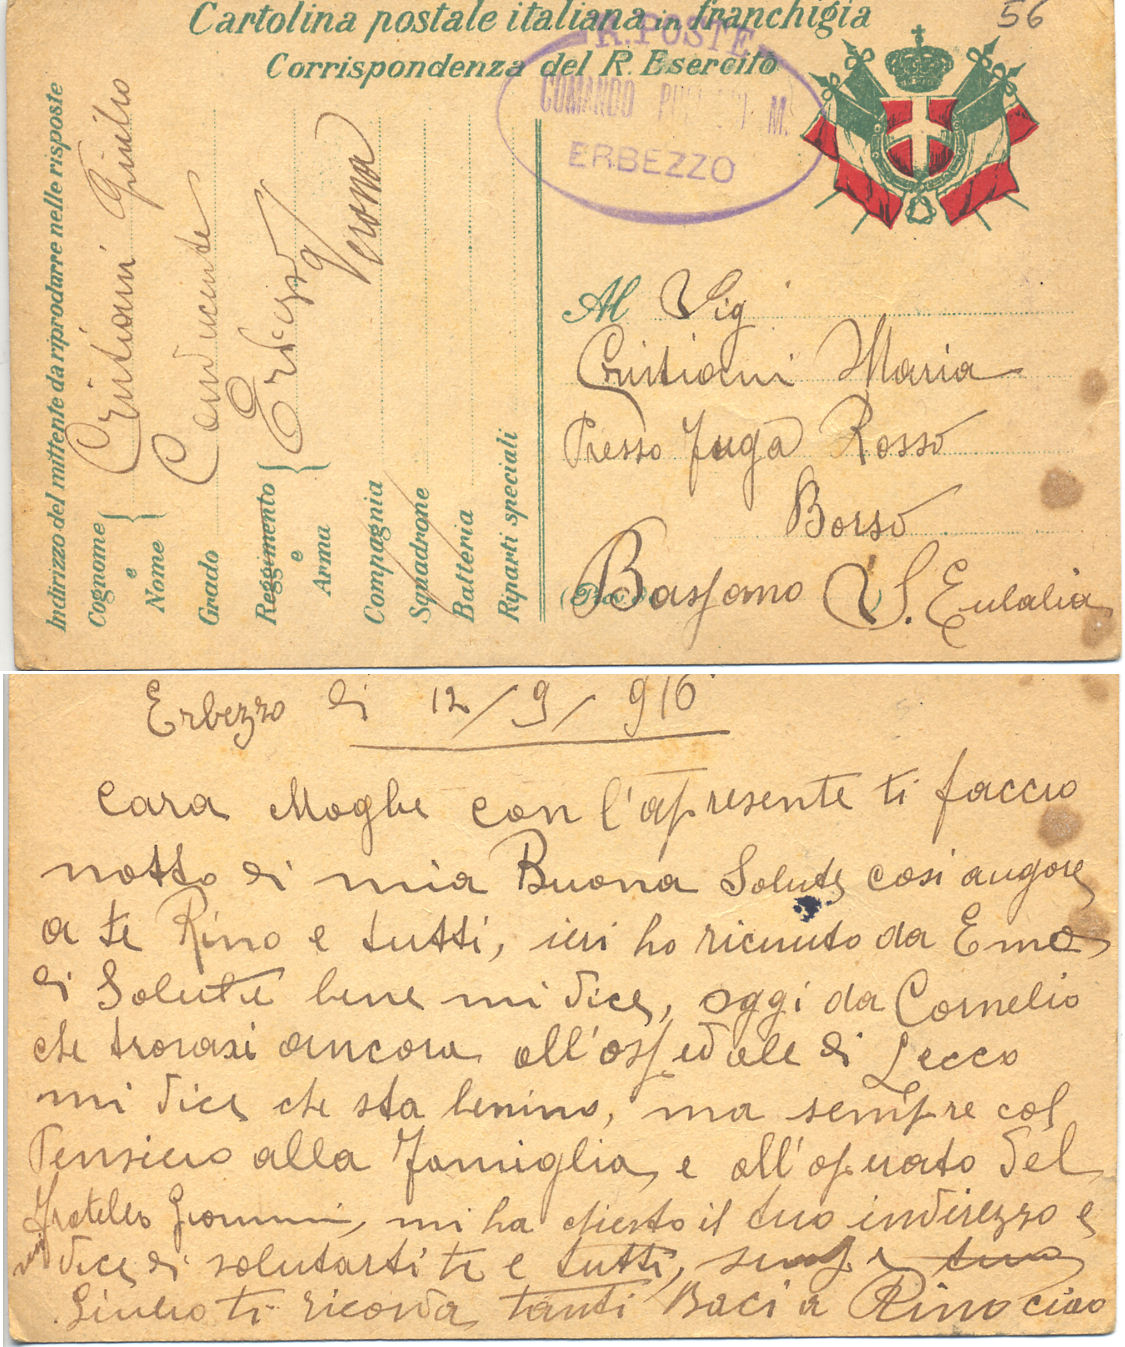 Cartolina postale italiana in franchigia
56
Corrispondenza del R. Esercito
R. POSTE
COMANDO
M.
ERBEZZO
Indirizzo del mittente da riprodurre nelle risposte
Cognome e Nome { Cristiani Giulio
Grado Conducente
Reggimento e Arma { Erbezzo
Verona
Compagnia
Squadrone
Batteria
Riparti speciali
Al Sig
Cristiani Maria
Presso Fuga Rosso
Borso
Bassano S. Eulalia
Erbezzo di 12/9/916
Cara Moghe con l'apresente ti faccio
notto di mia Buona Salute cosi augore
a te Rino e tutti, ieri ho riciuuto da Ema
di Salute bene mi dice, oggi da Cornelio
che trovasi ancora all'ospedale di Lecco
mi dice che sta benino, ma sempre col
Pensiero alla Famiglia, e all'operato del
Fratello Giovanni, mi ha chiesto il tuo indirezzo e
mi dice di salutarti te e tutti, sempre tuo
Giulio ti ricorda tanti Baci a Rino ciao